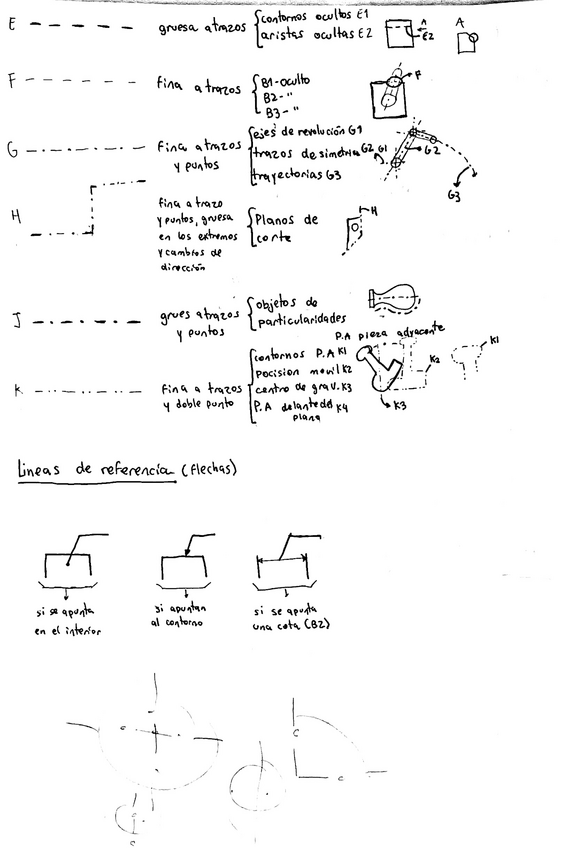 E gruesa a trazos contornos ocultos E1
aristas ocultas E2
A
E2
A
F fina a trazos B1-oculto
B2-"
B3-"
F
G fina a trazos
y puntos
ejes de revolución G1
trazos de simetria G2
trayectorias G3
G1
G2
G3
H fina a trazo
y puntos, gruesa
en los extremos
y cambios de
dirección
Planos de
corte
H
J grues atrazos
y puntos
objetos de
particularidades
P.A pieza adyacente
K fina a trazos
y doble punto
contornos P.A K1
pocision movil K2
centro de grav. K3
P.A delante del K4
plano
K1
K2
K3
Lineas de referencia (flechas)
si se apunta
en el interior
si apuntan
al contorno
si se apunta
una cota (B2)
c
c
c
c